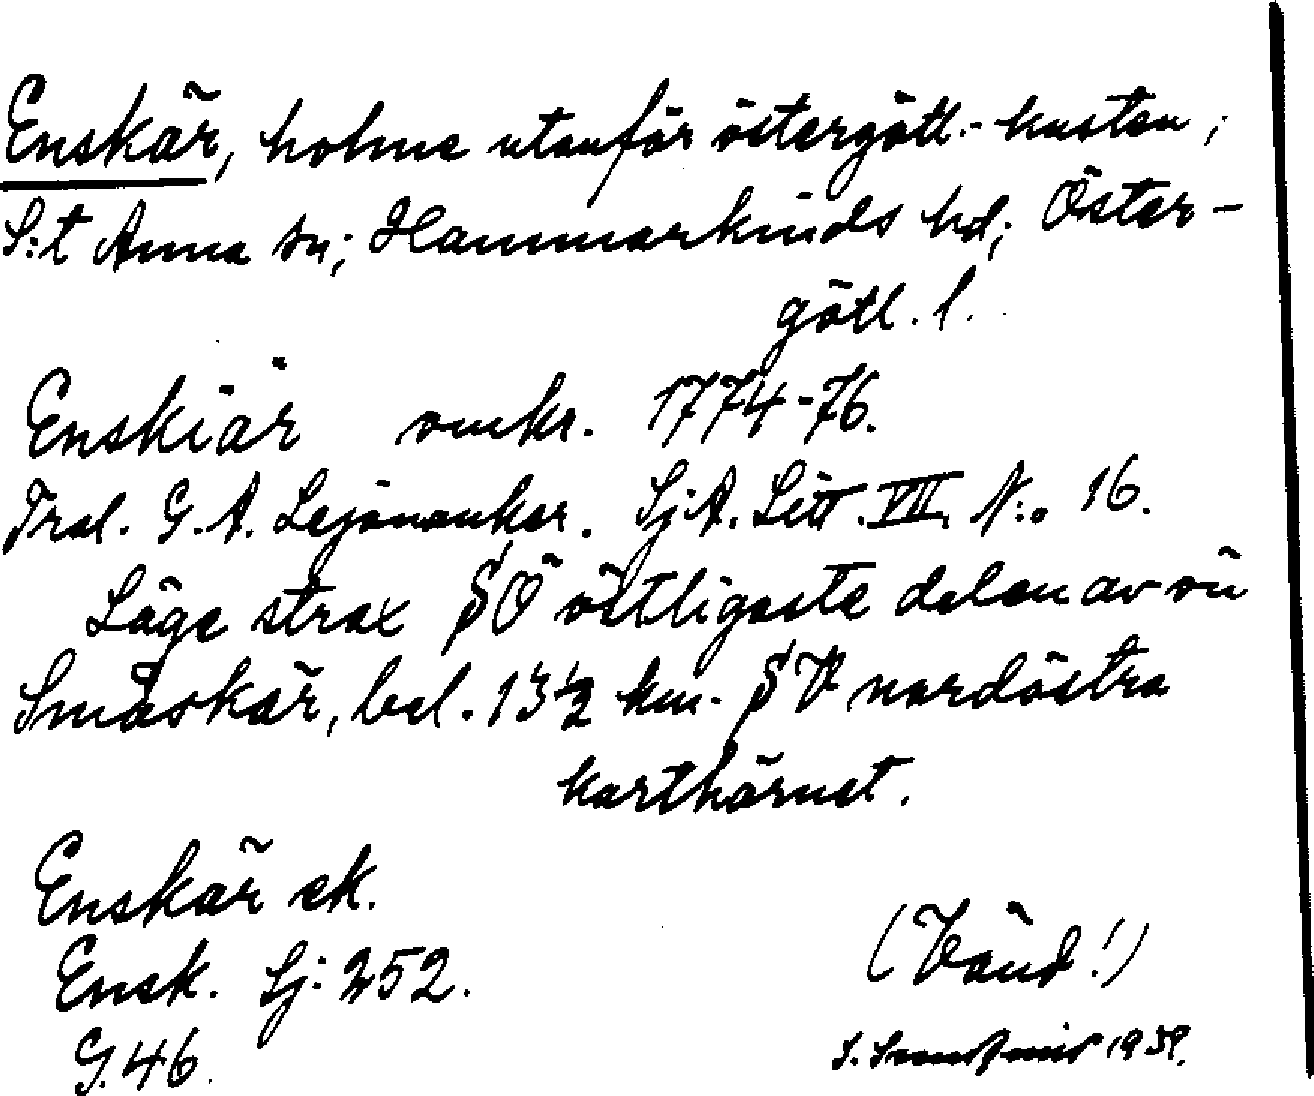 Enskär, holme utanför östergötl.-kusten;
S:t Anna sn; Hammarkinds hd; Öster-
götl. l.
Enskiär omkr. 1774-76.
Trol. G.A. Lejonanker. Sj.A. Litt. VII. N:o 16.
Läge strax SO östligaste delen av ön
Småskär, bel. 13½ km. SV nordöstra
karthörnet.
Enskär ek.
Ensk. Sj: 252.
G.46.
(Vänd!)
S. 1939.